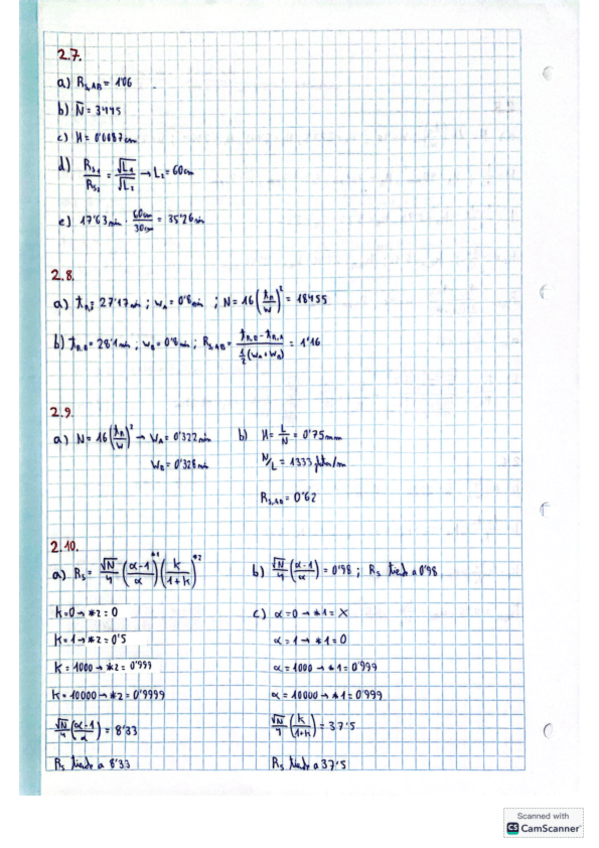 2.7.
a) Rs,AB = 1'06
b) N̄ = 3445
c) H = 0'0087cm
d) Rs1/Rs2 = √L1/√L2 → L2 = 60cm
e) 17'63 min · 60cm/30cm = 35'26 min
2.8.
a) tR,A = 27'17 min ; WA = 0'8 min ; N = 16 (tR/W)² = 18455
b) tR,B = 28'1 min ; WB = 0'8 min ; Rs,AB = (tR,B - tR,A)/(½(WA + WB)) = 1'16
2.9.
a) N = 16 (tR/W)² → WA = 0'322 min
WB = 0'328 min
b) H = L/N = 0'75mm
N/L = 1333 /m
Rs,AB = 0'62
2.10.
a) Rs = √N/4 (α-1/α)*1 (k/1+k)*2
k=0 → *2 = 0
k=1 → *2 = 0'5
k = 1000 → *2 = 0'999
k = 10000 → *2 = 0'9999
√N/4 (α-1/α) = 8'33
Rs tiende a 8'33
b) √N/4 (α-1/α) = 0'98 ; Rs tiende a 0'98
c) α=0 → *1 = X
α=1 → *1 = 0
α=1000 → *1 = 0'999
α = 10000 → *1 = 0'999
√N/4 (k/1+k) = 37'5
Rs tiende a 37'5
Scanned with
CS CamScanner